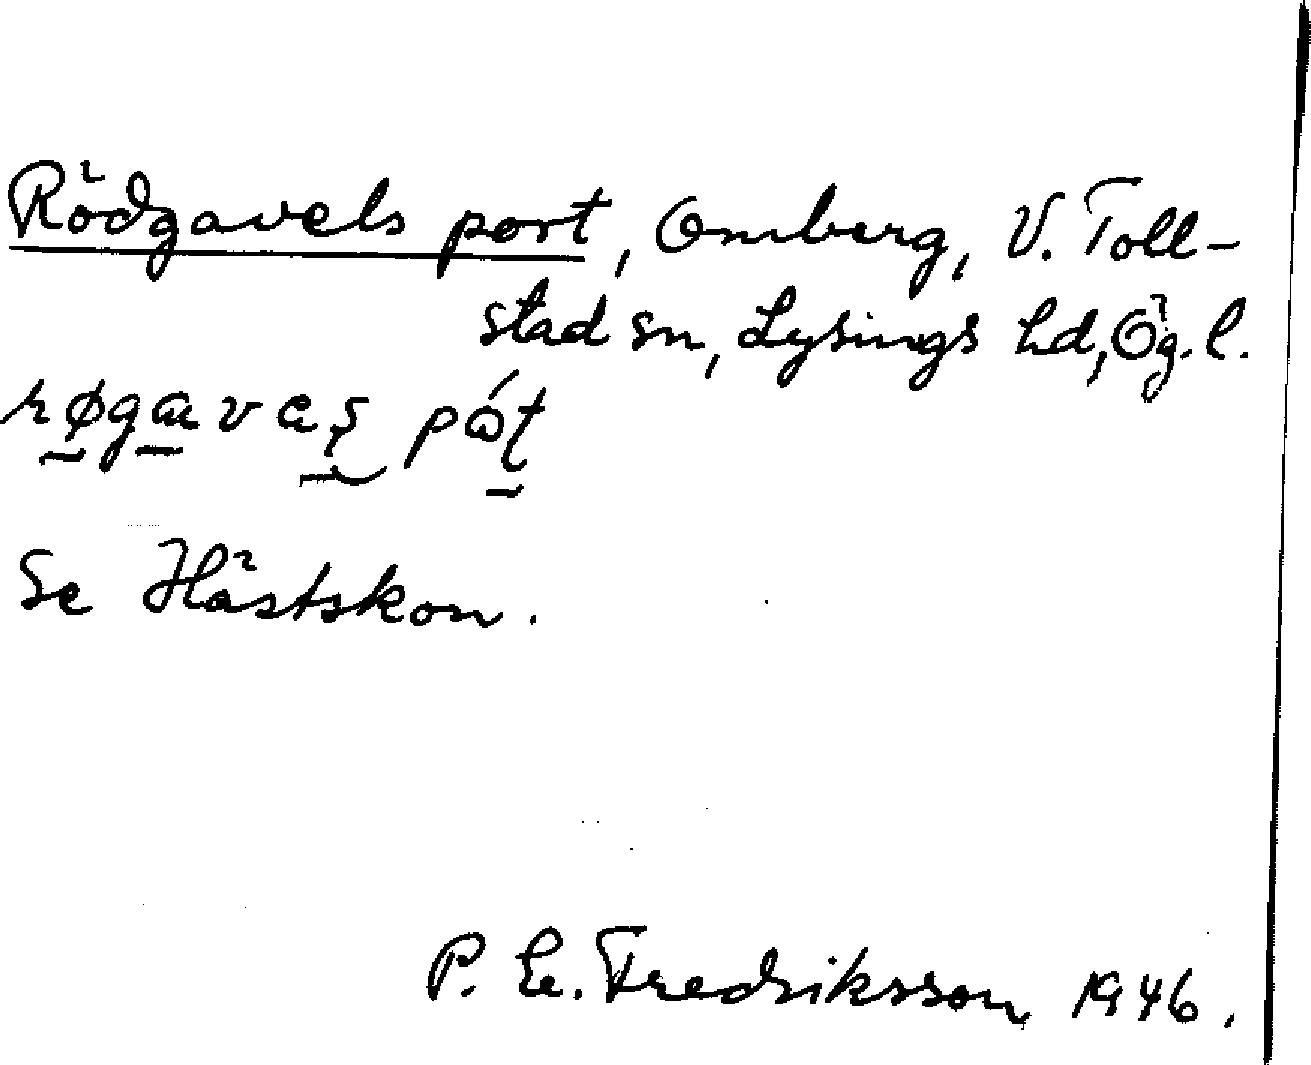 Rödgavels port, Omberg, V. Toll-
stad sn, Lysings hd, Ög. l.
røgavas pót
Se Hästskon.
P. E. Fredriksson 1946.